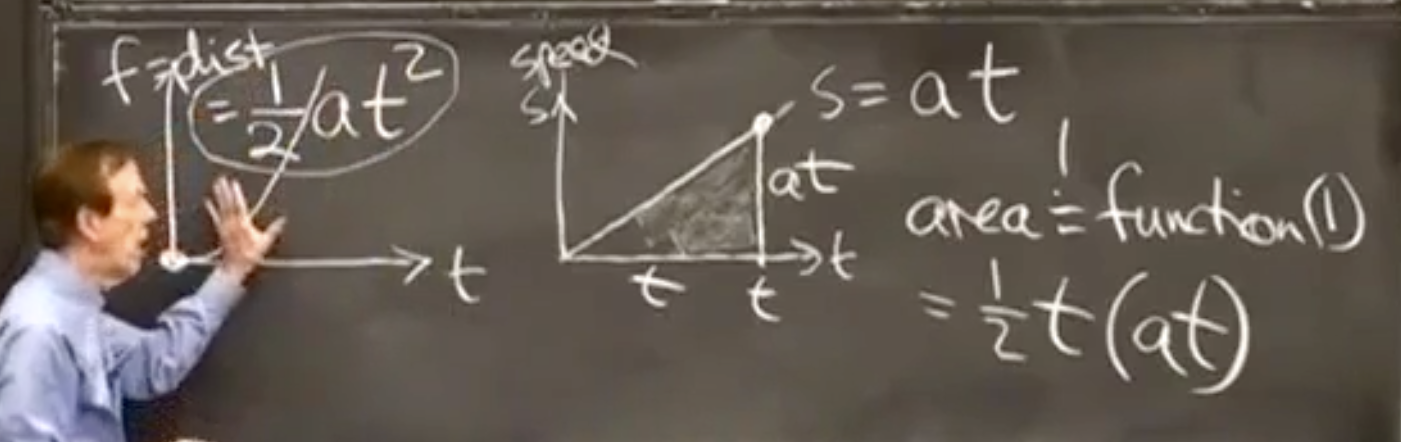 f = dist
= 1/2 at²
t
speed
s
s = at
at
t
t
t
1
area = function(1)
= 1/2 t(at)